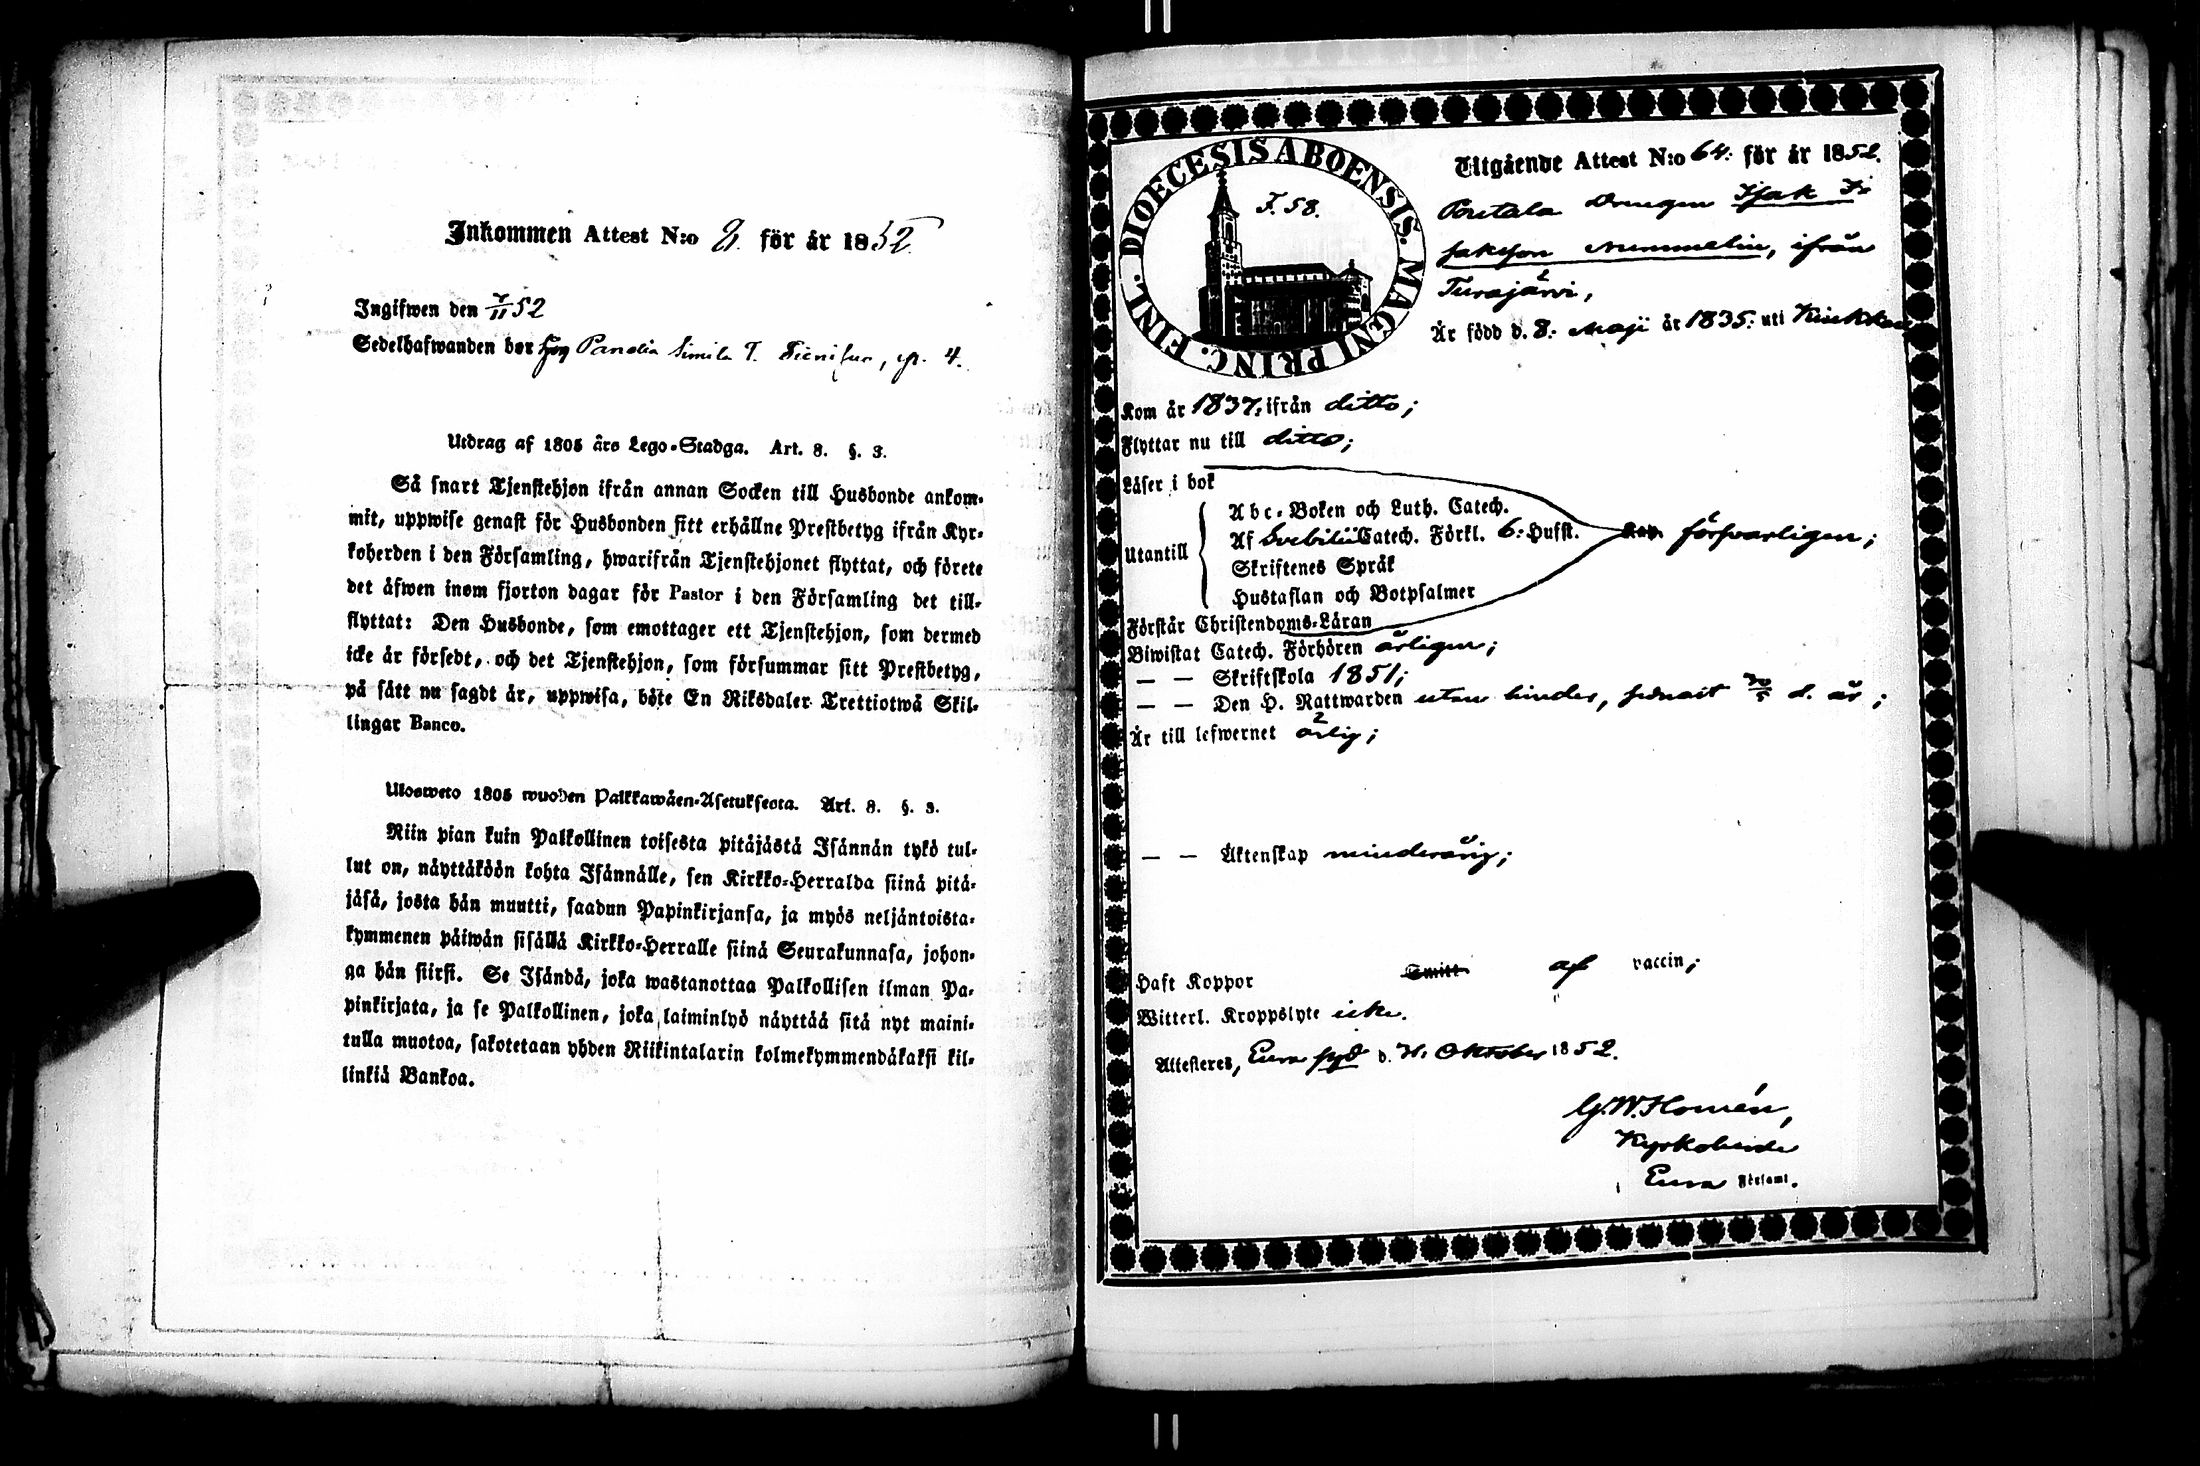 Inkommen Attest N:o 2. för år 1852.
Ingifwen den 7/11 52
Sedelhafwanden bor hos Pandia Simila T.
Utdrag af 1805 års Lego-Stadga. Art. 8. §. 3.
Så snart Tjenstehjon ifrån annan Socken till Husbonde ankom-
mit, uppwise genast för Husbonden sitt erhållne Prestbetyg ifrån Kyr-
koherden i den Församling, hwarifrån Tjenstehjonet flyttat, och förete
det äfwen inom fjorton dagar för Pastor i den Församling det till-
flyttat: Den Husbonde, som emottager ett Tjenstehjon, som dermed
icke är försedt, och det Tjenstehjon, som försummar sitt Prestbetyg,
på sätt nu sagdt är, uppwisa, böte En Riksdaler Trettiotwå Skil-
lingar Banco.
Ulosweto 1805 wuoden Palkkawäen-Asetuksesta. Art. 8. §. 3.
Niin pian kuin Palkollinen toisesta pitäjästä Isännän tykö tul-
lut on, näyttäköön kohta Isännälle, sen Kirkko-Herralda siinä pitä-
jäsä, josta hän muutti, saadun Papinkirjansa, ja myös neljäntoista-
kymmenen päiwän sisällä Kirkko-Herralle siinä Seurakunnasa, johon-
ga hän siirsi. Se Isändä, joka wastanottaa Palkollisen ilman Pa-
pinkirjata, ja se Palkollinen, joka laiminlyö näyttää sitä nyt maini-
tulla muotoa, sakotetaan yhden Riikintalarin kolmekymmendäkaksi kil-
linkiä Bankoa.
DIOECESIS ABOENSIS. MAGNI PRINC. FINL.
F. 58.
Utgående Attest N:o 64. för år 1852.
Drengen Isak
Isaksson Nummelin, ifrån
Turajärvi,
Är född d. 8. Maji år 1835. uti
Kom år 1837. ifrån ditto;
Flyttar nu till ditto;
Läser i bok
Utantill
Abc-Boken och Luth. Catech.
Af Svebilii Catech. Förkl. 6: Hufst.
Skriftenes Språk
Hustaflan och Botpsalmer
försvarligen;
Förstår Christendoms-Läran
Biwistat Catech. Förhören årligen;
— — Skriftskola 1851;
— — Den H. Nattwarden utan hinder, senast d. år;
Är till lefwernet ärlig;
— — Äktenskap minderårig;
Haft Koppor Smitt af vaccin;
Witterl. Kroppslyte icke.
Attesteres, Eura d. Oktober 1852.
G.W. Homén,
Kyrkoherde
Eura Församl.